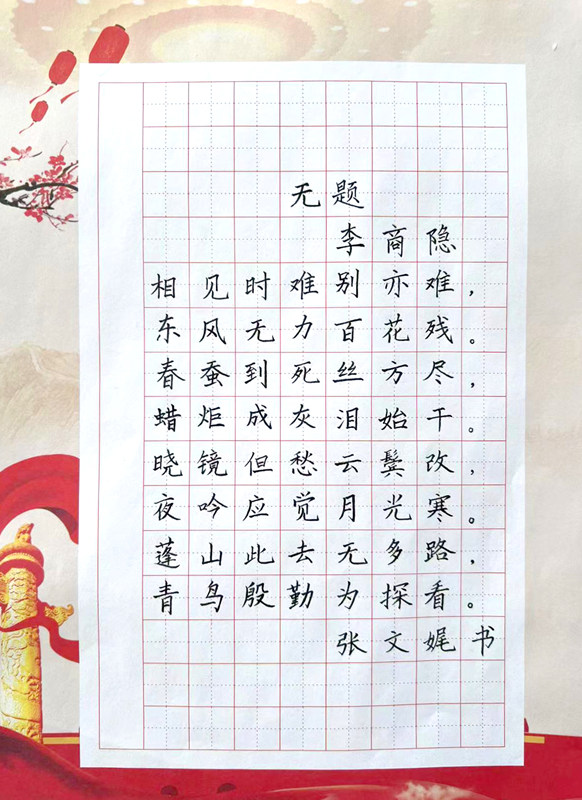 无题
李商隐
相见时难别亦难，
东风无力百花残。
春蚕到死丝方尽，
蜡炬成灰泪始干。
晓镜但愁云鬓改，
夜吟应觉月光寒。
蓬山此去无多路，
青鸟殷勤为探看。
张文娓书